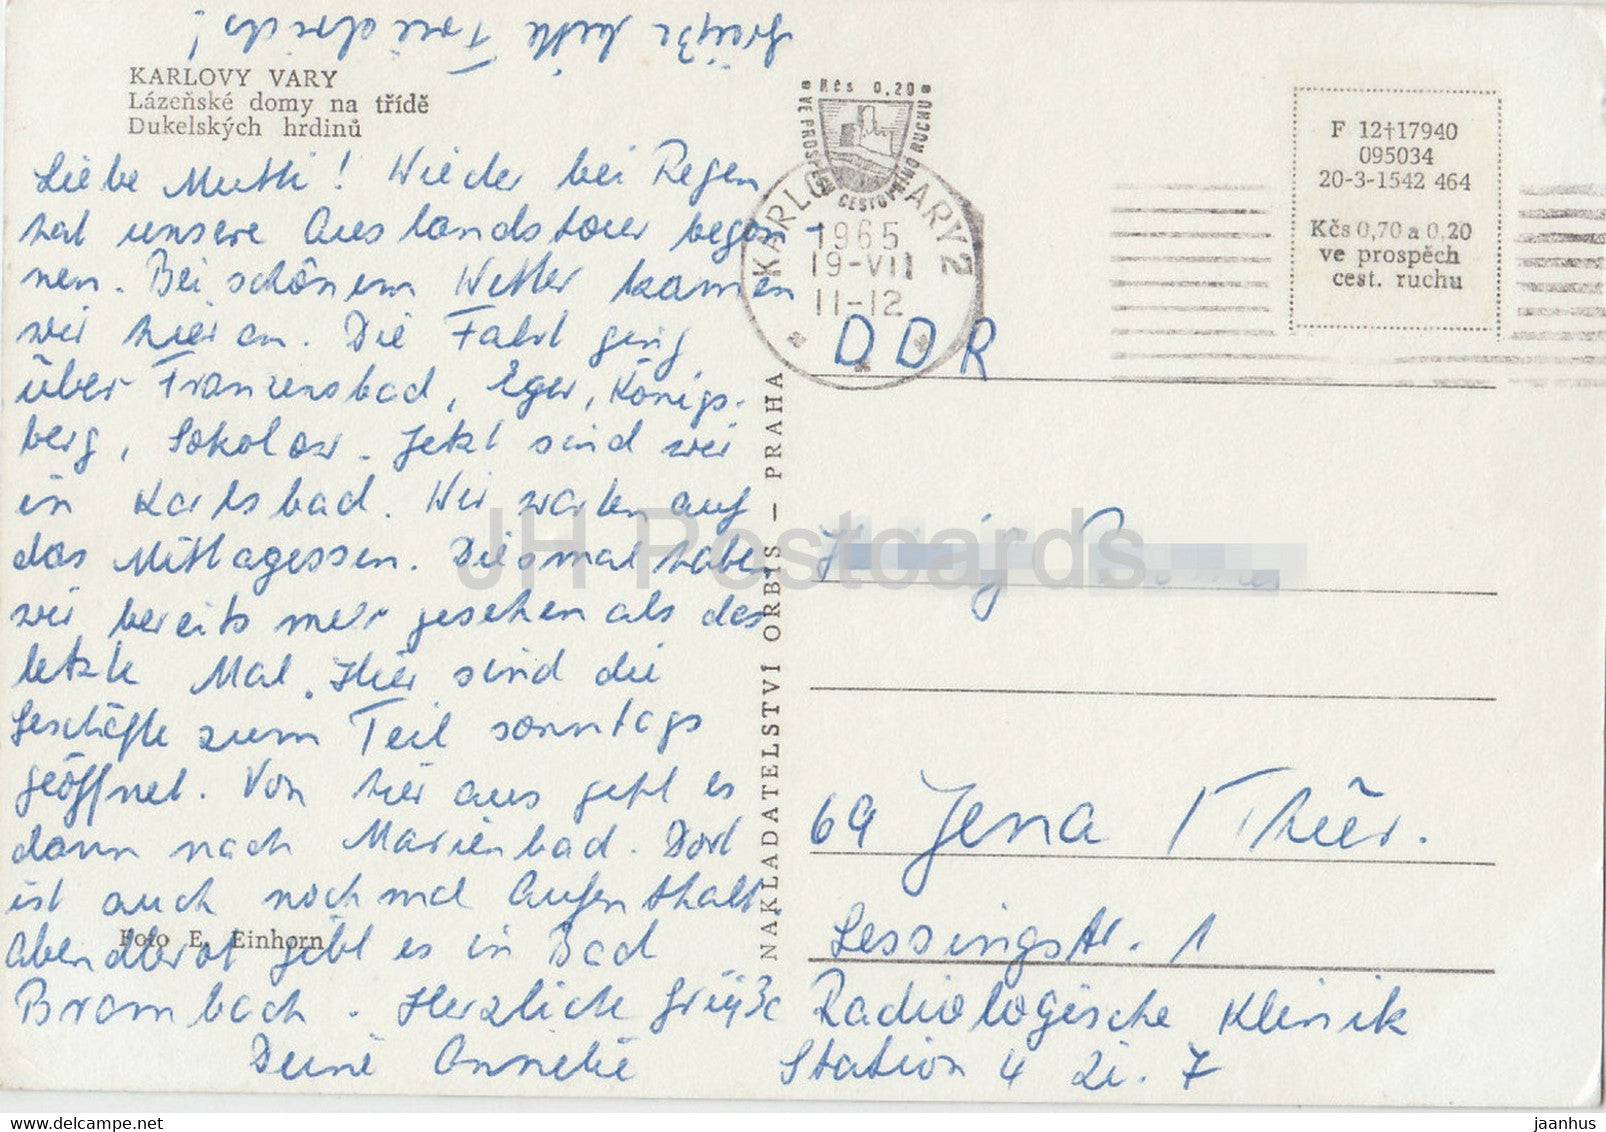 Grüße bitte Friedrich!
KARLOVY VARY
Lázeňské domy na třídě
Dukelských hrdinů
Liebe Mutti! Wieder bei Regen
hat unsere Auslandstour begon-
nen. Bei schönem Wetter kamen
wir hier an. Die Fahrt ging
über Franzensbad, Eger, Königs-
berg, Sokolow. Jetzt sind wir
in Karlsbad. Wir warten auf
das Mittagessen. Diesmal haben
wir bereits mehr gesehen als das
letzte Mal. Hier sind die
Geschäfte zum Teil sonntags
geöffnet. Von hier aus geht es
dann nach Marienbad. Dort
ist auch nochmal Aufenthalt.
Abendbrot gibt es in Bad
Brambach. Herzliche Grüße
Deine Annekie
Foto E. Einhorn
NAKLADATELSTVÍ ORBIS — PRAHA
Kčs 0,20
VE PROSPĚCH CESTOVNÍHO RUCHU
KARLOVY VARY 2
1965
19-VII
11-12
F 12†17940
095034
20-3-1542 464
Kčs 0,70 a 0,20
ve prospěch
cest. ruchu
DDR
69 Jena / Thür.
Lessingstr. 1
Radiologische Klinik
Station 4 Zi. 7
JH Postcards
www.delcampe.net
jaanhus